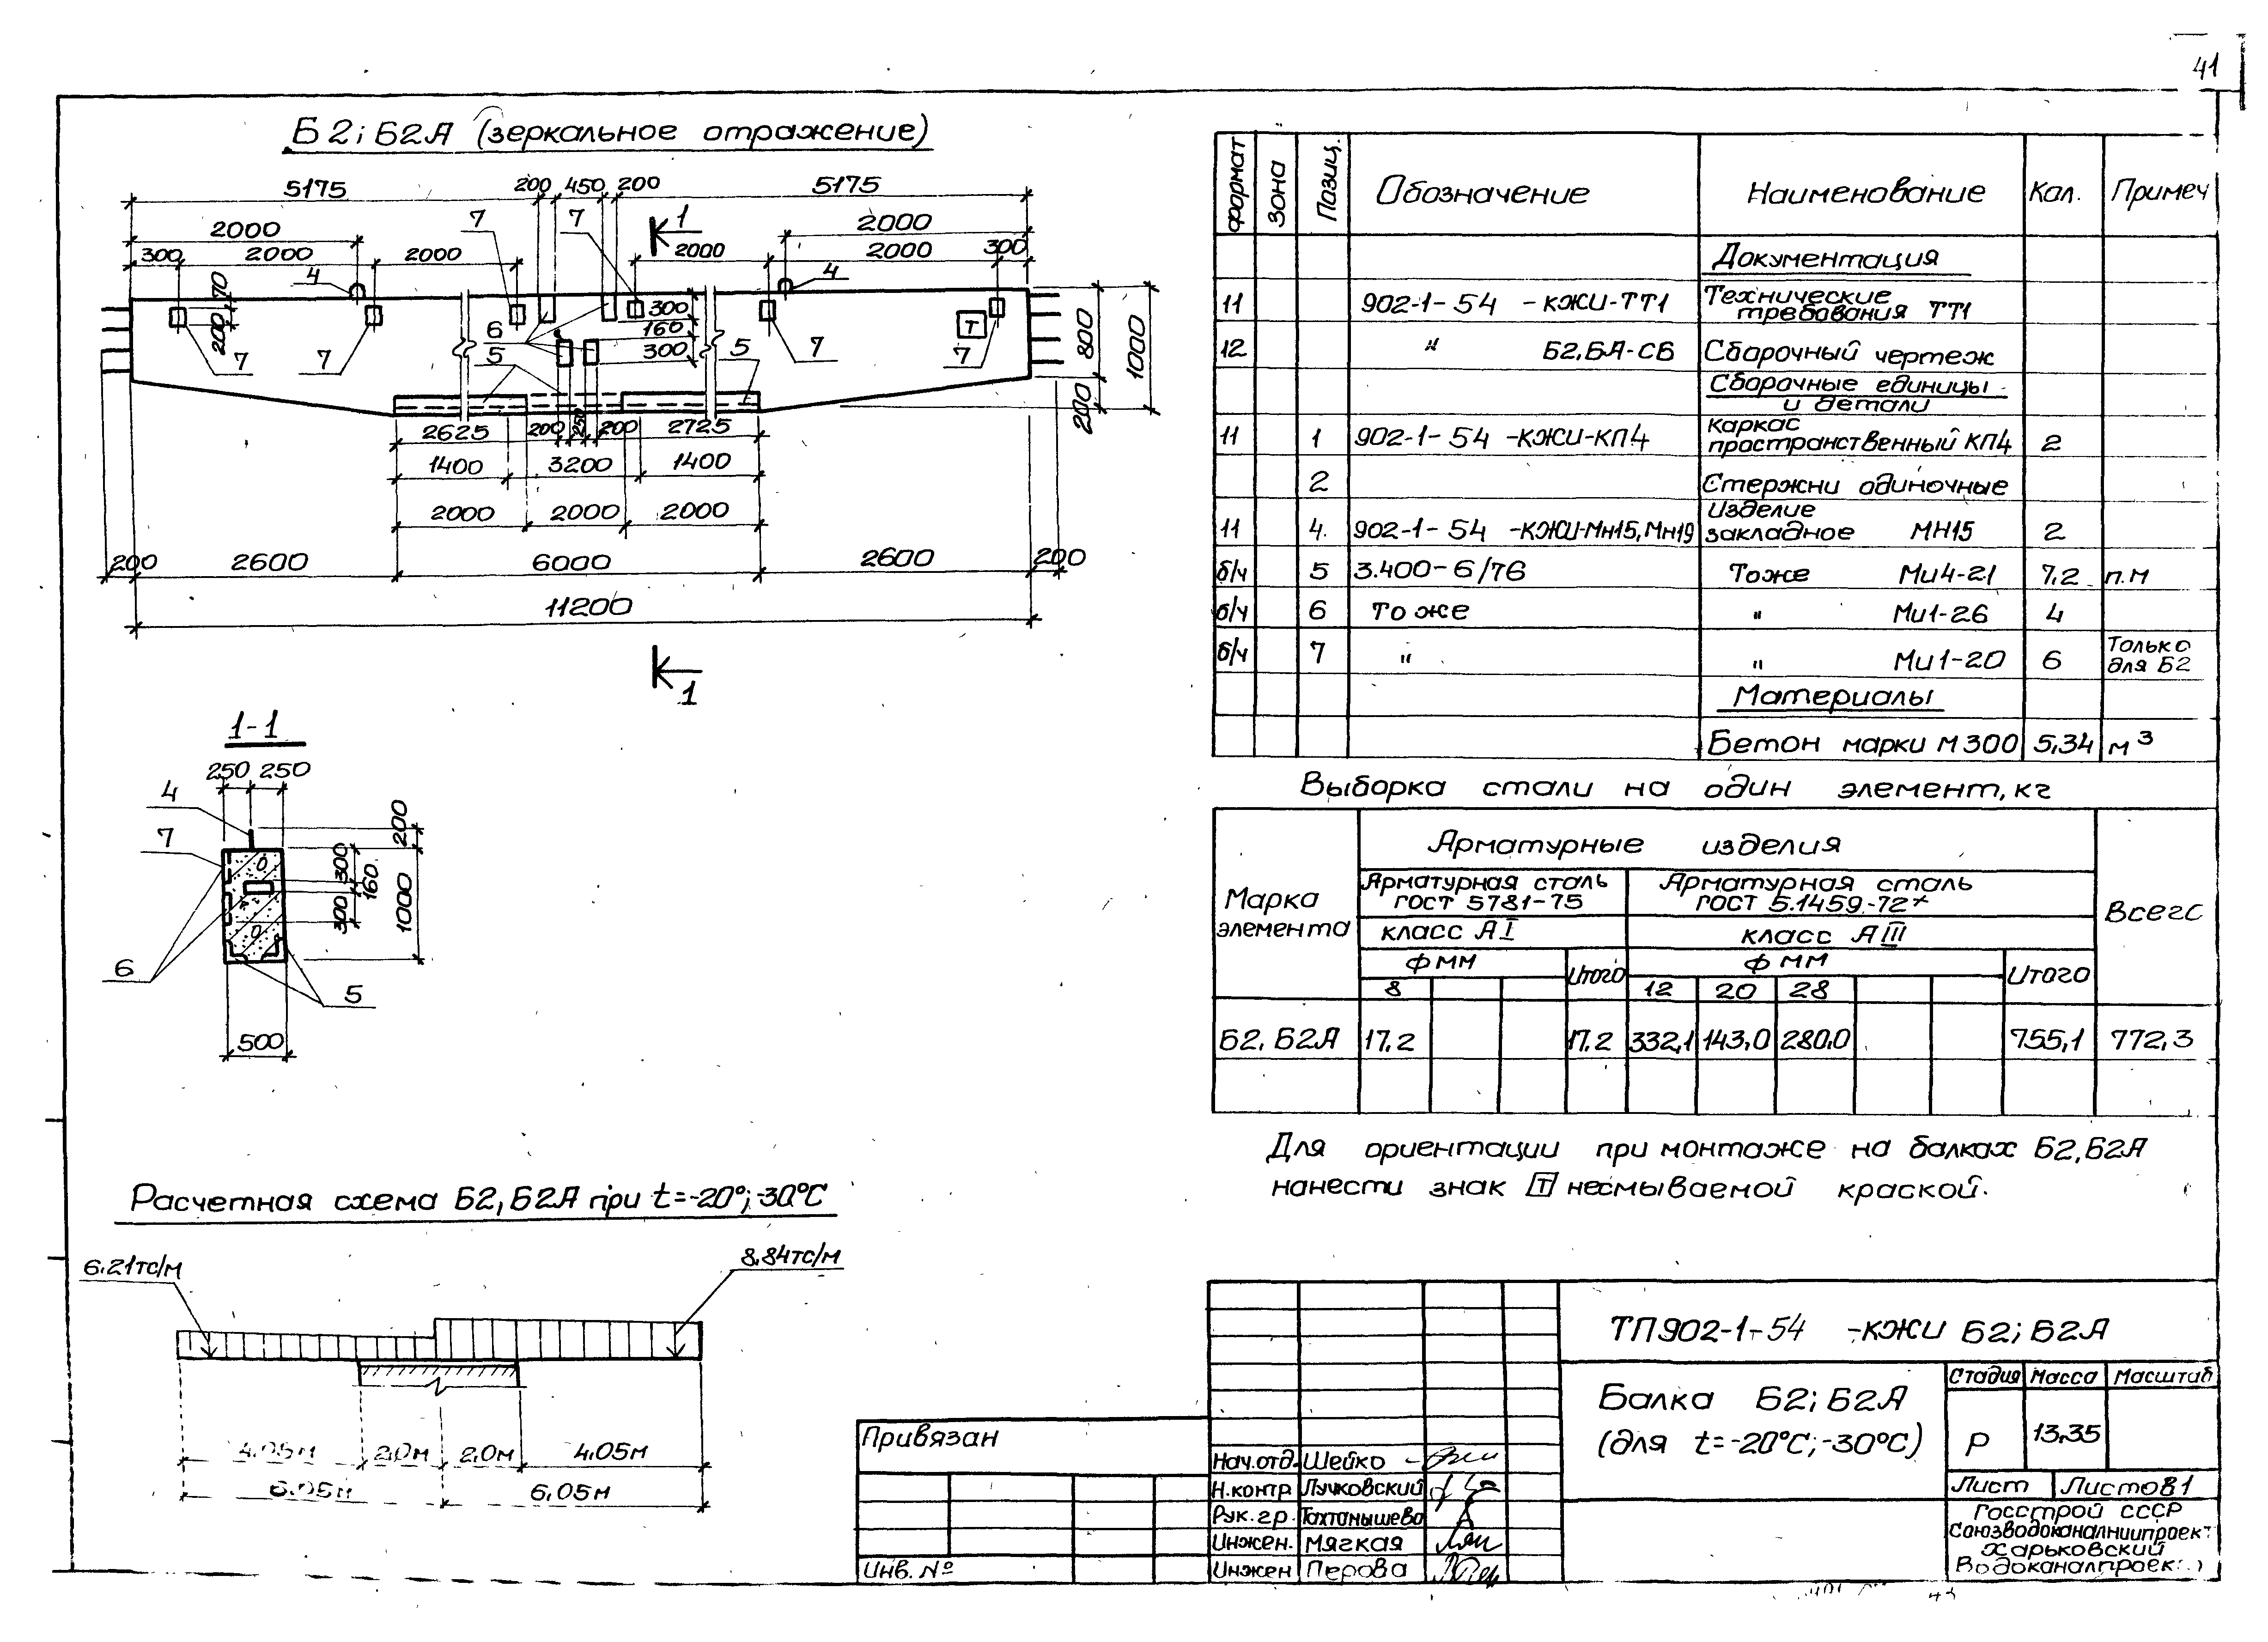 41
Б2; Б2А (зеркальное отражение)
5175 200 450 200 5175
2000 7 7 1 2000
300 2000 2000 2000 2000 300
70 4 4
200 6 300 Т
7 7 5 160 7 7
300 5
800 1000
200
2625 200 250 200 2725
1400 3200 1400
2000 2000 2000
200 2600 6000 2600 200
11200
1
1-1
250 250
4
7
200
300 160
300 1000
6
5
500
Расчетная схема Б2, Б2А при t=-20°;-30°С
6.21тс/м 8.84тс/м
4.05м 2.0м 2.0м 4.05м
6.05м 6.05м
формат Зона Позиц. Обозначение Наименование Кол. Примеч
Документация
11 902-1-54 -КЖИ-ТТ1 Технические
требования ТТ1
12 " Б2,БА-СБ Сборочный чертеж
Сборочные единицы
и детали
11 1 902-1-54 -КЖИ-КП4 Каркас
пространственный КП4 2
2 Стержни одиночные
11 4. 902-1-54 -КЖИ-Мн15, Мн19 Изделие
закладное МН15 2
б/ч 5 3.400-6/76 Тоже Ми4-21 7,2 п.м
б/ч 6 то же " Ми1-26 4
б/ч 7 " " Ми1-20 6 Только
для Б2
Материалы
Бетон марки М300 5,34 м3
Выборка стали на один элемент, кг
Марка
элемента
Арматурные изделия
Всегс
Арматурная сталь
ГОСТ 5781-75
Арматурная сталь
ГОСТ 5.1459-72+
класс АI класс АIII
Ф мм Итого Ф мм Итого
8 12 20 28
Б2, Б2А 17,2 17,2 332,1 143,0 280,0 755,1 772,3
Для ориентации при монтаже на балках Б2,Б2А
нанести знак Т несмываемой краской.
ТП902-1-54 -КЖИ Б2; Б2А
Балка Б2; Б2А
(для t=-20°С;-30°С)
Стадия Масса Масштаб
Р 13,35
Лист Листов1
Госстрой СССР
Союзводоканалниипроект
Харьковский
Водоканалпроек
Привязан
Инв. №
Нач.отд. Шейко
Н.контр Лучковский
Рук. гр. Тахтанышева
Инжен. Мягкая
Инжен Перова